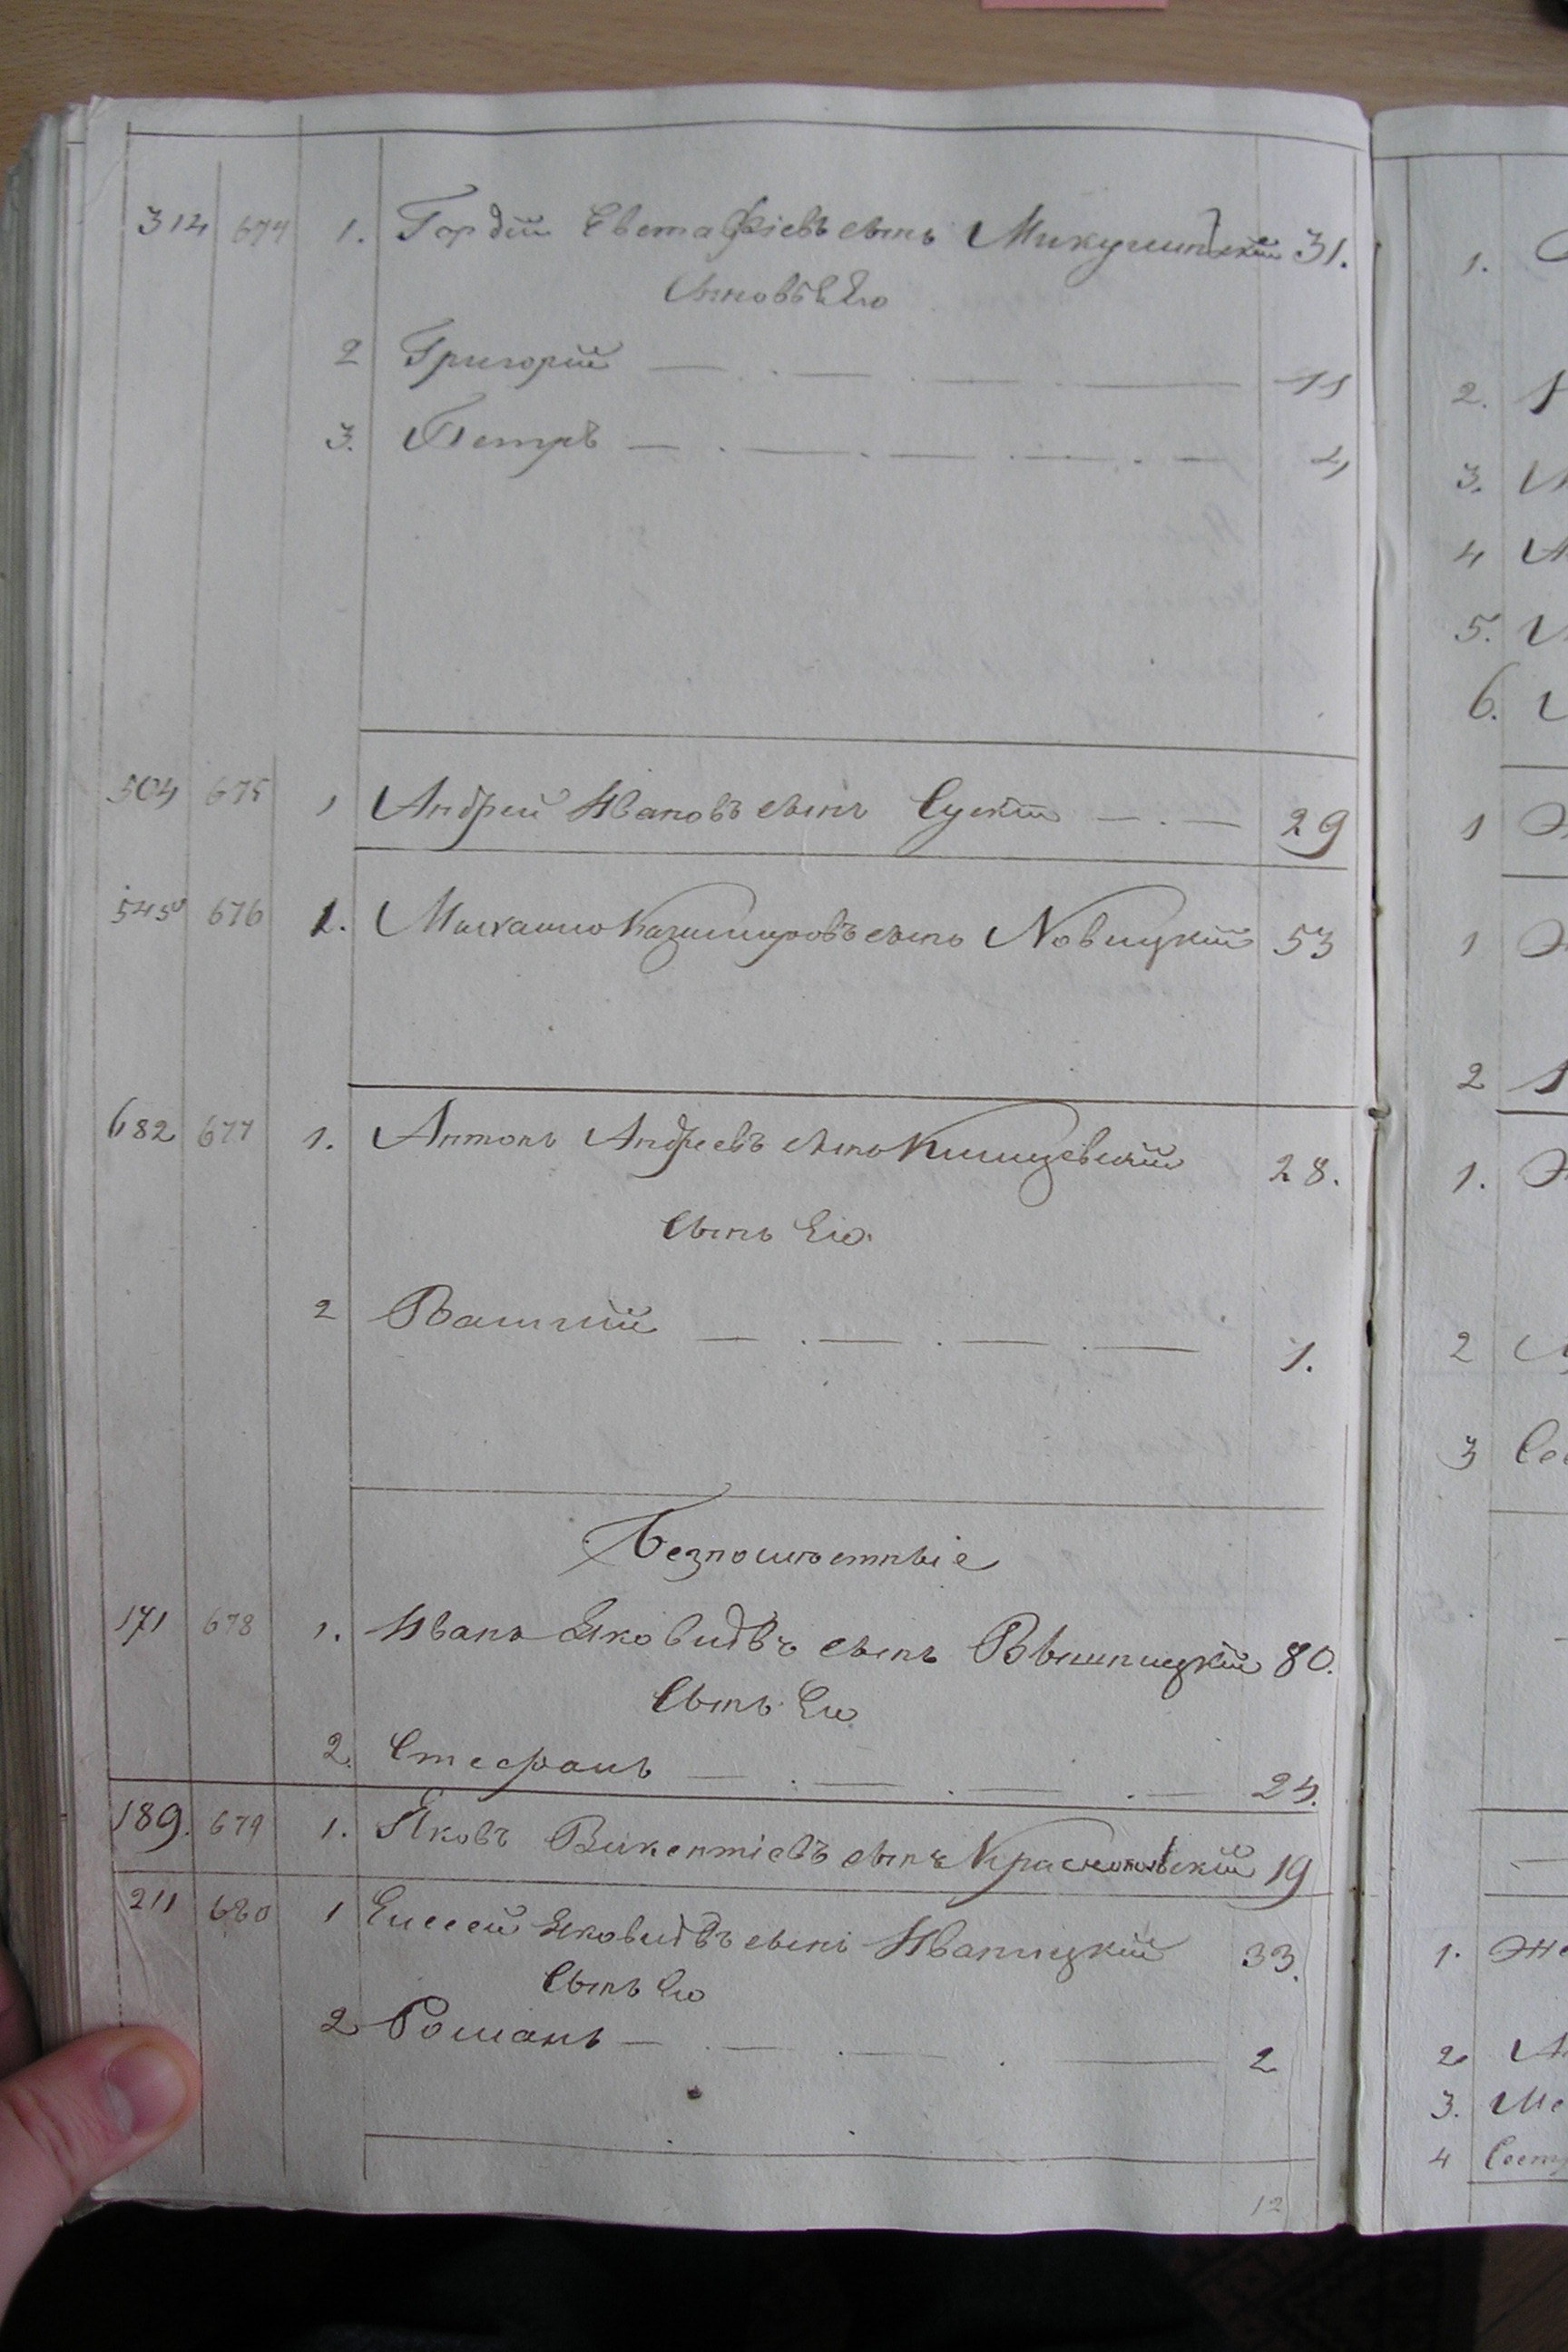 314 674 1. Гордій Евстафіевъ сынъ 31.
Сыновья Его
2 Григорій 11
3. Петръ 4
504 675 1 Андрей Ивановъ сынъ Сускій 29
545 676 1. Михайло Казимировъ сынъ Новицкій 53
682 677 1. Антонъ Андреевъ сынъ 28.
Сынъ Его.
2 Василій 1.
Безпоместные
171 678 1. Иванъ Яковлевъ сынъ 80.
Сынъ Его
2. Стефанъ 24.
189. 679 1. Яковъ Викентіевъ сынъ 19
211 680 1 Елисей Яковлевъ сынъ Иваницкій 33.
Сынъ Его
2 Романъ 2
12
1.
2.
3.
4
5.
6.
1
1
2
1.
2
3
1. Же
2
3.
4 Сест